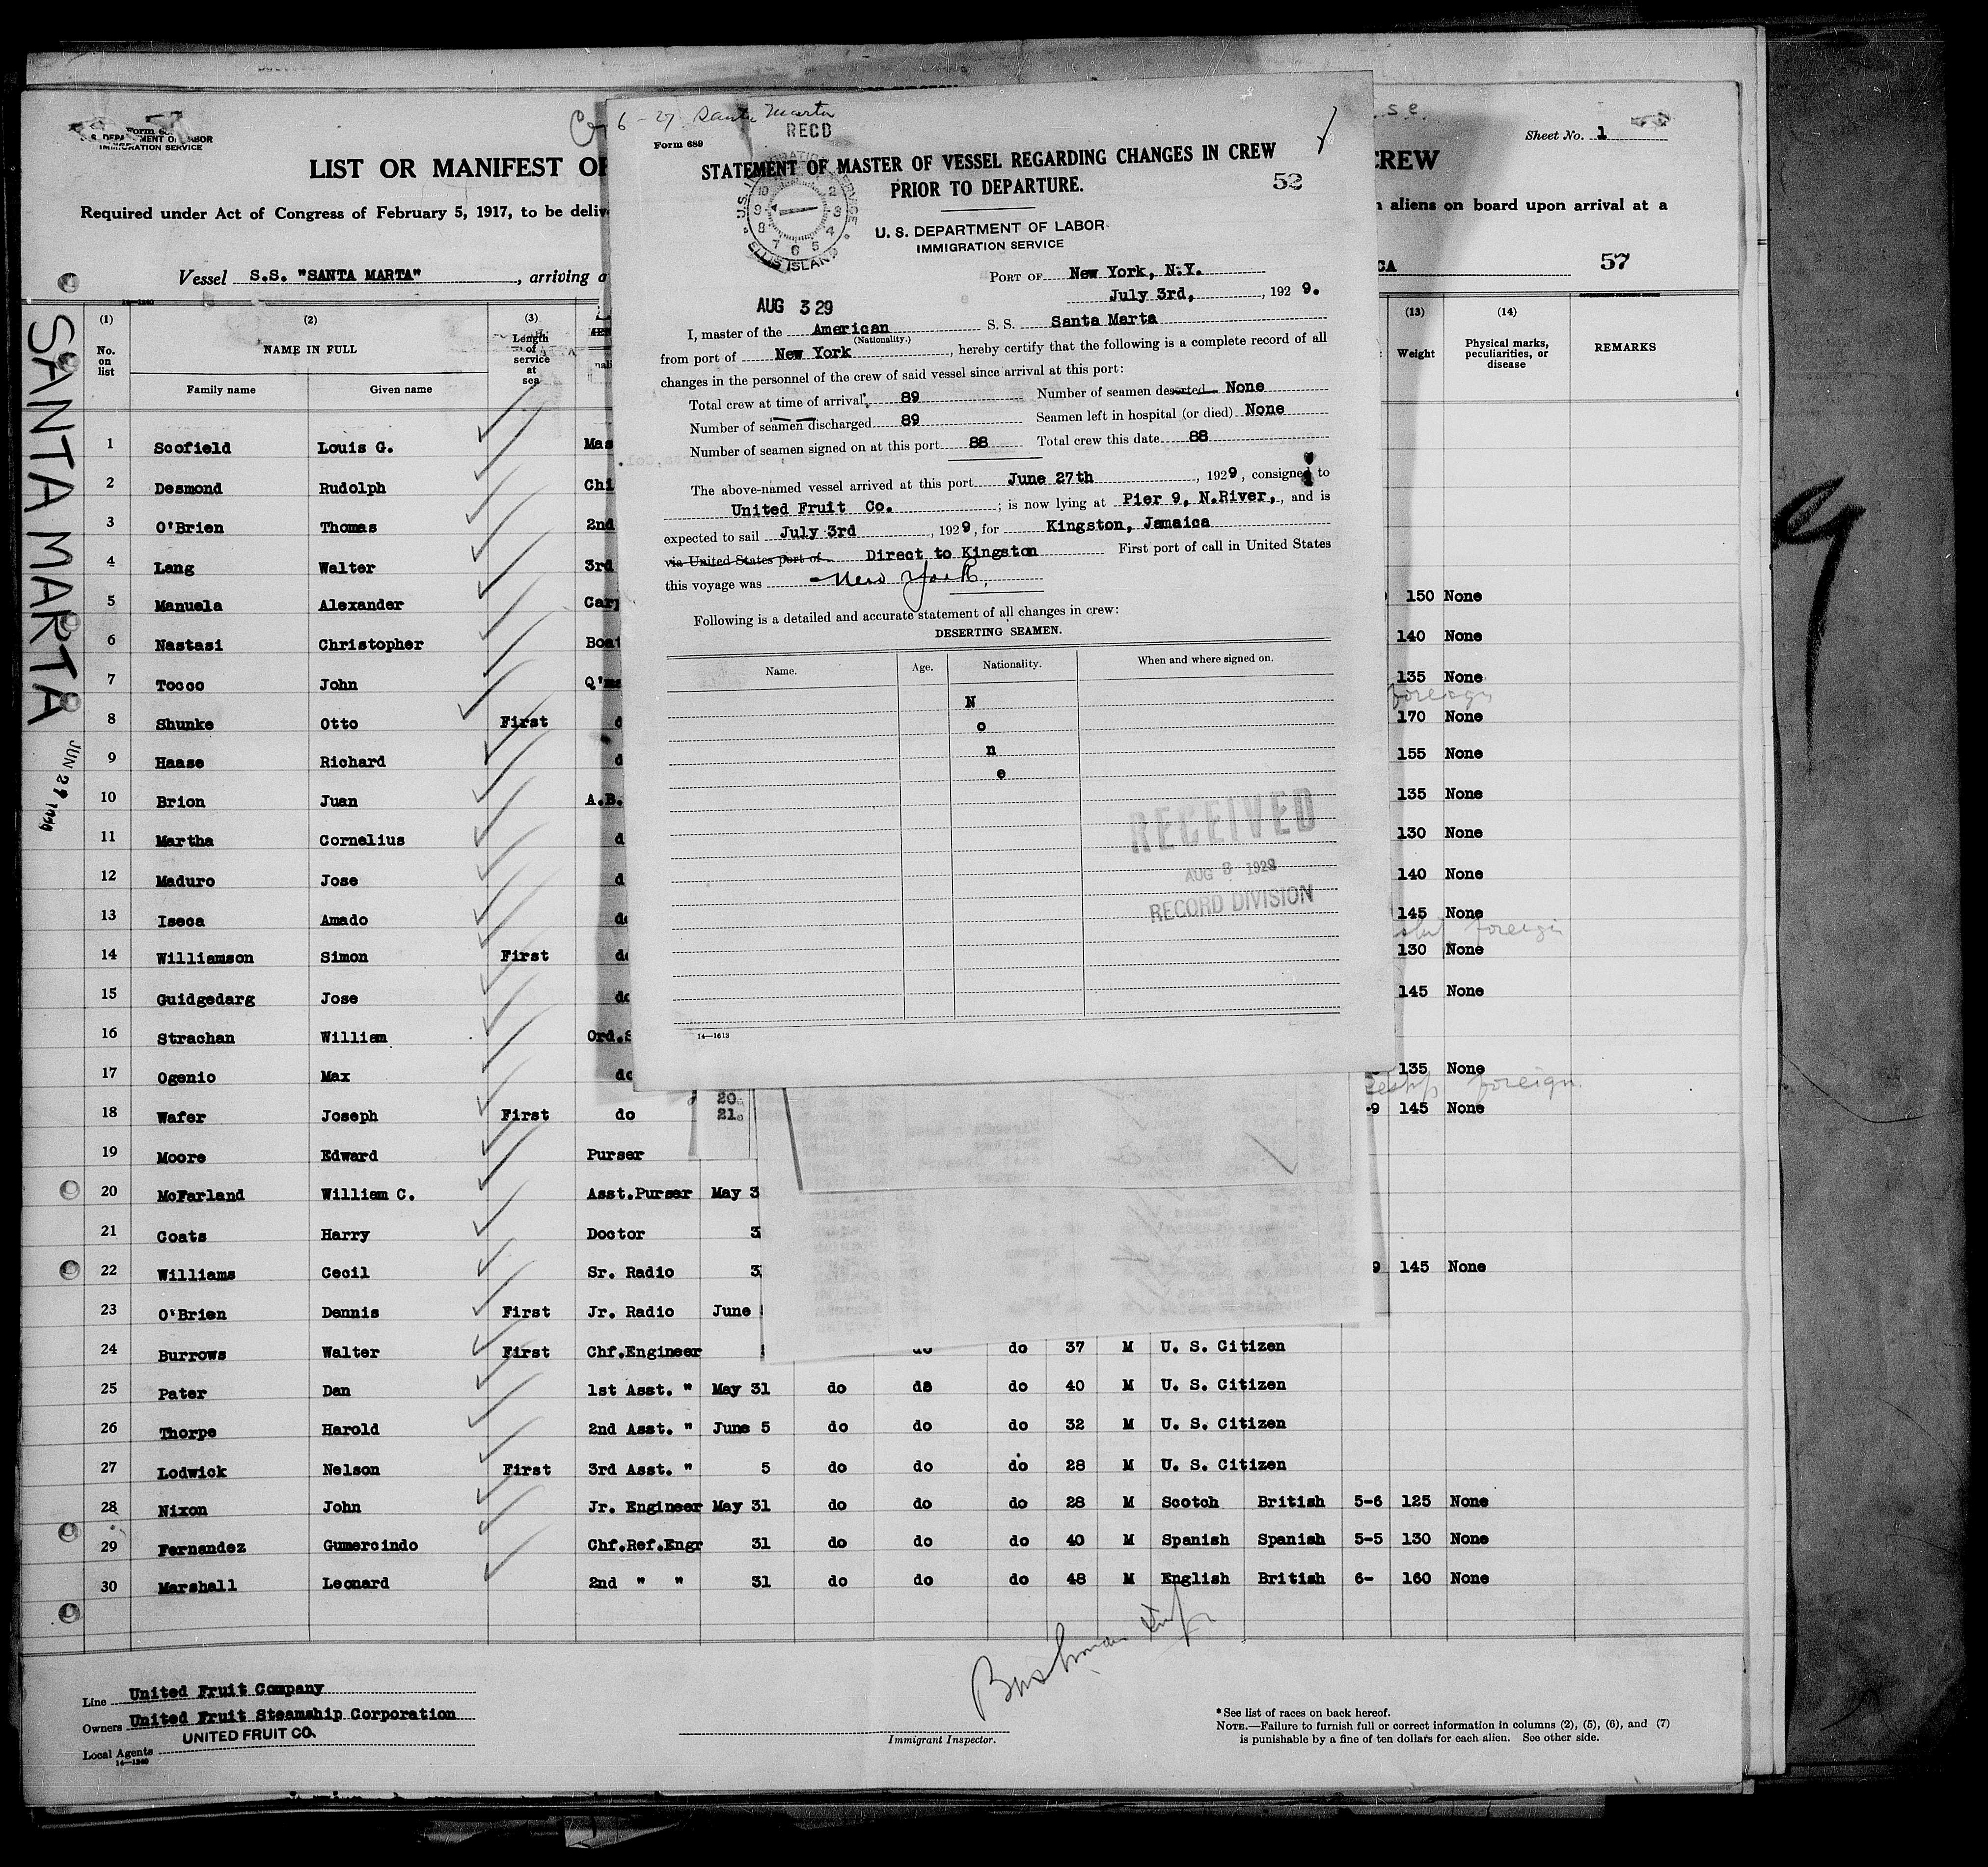 6-27 Santa Marta
RECD
Form 689
STATEMENT OF MASTER OF VESSEL REGARDING CHANGES IN CREW
PRIOR TO DEPARTURE.
52
U. S. DEPARTMENT OF LABOR
IMMIGRATION SERVICE
ELLIS ISLAND
AUG 3 29
PORT OF New York, N.Y.
July 3rd, , 192 9.
I, master of the American S. S. Santa Marta
(Nationality.)
from port of New York , hereby certify that the following is a complete record of all
changes in the personnel of the crew of said vessel since arrival at this port:
Total crew at time of arrival 89 Number of seamen deserted None
Number of seamen discharged 89 Seamen left in hospital (or died) None
Number of seamen signed on at this port 88 Total crew this date 88
The above-named vessel arrived at this port June 27th , 1929, consigned to
United Fruit Co. ; is now lying at Pier 9, N.River, , and is
expected to sail July 3rd , 1929, for Kingston, Jamaica
via United States port of Direct to Kingston First port of call in United States
this voyage was New York.
Following is a detailed and accurate statement of all changes in crew:
DESERTING SEAMEN.
Name. Age. Nationality. When and where signed on.
N
o
n
e
RECEIVED
AUG 3 1929
RECORD DIVISION
14—1613
U. S. DEPARTMENT OF LABOR
IMMIGRATION SERVICE
Sheet No. 1
LIST OR MANIFEST OF
CREW
Required under Act of Congress of February 5, 1917, to be deliv
aliens on board upon arrival at a
Vessel S.S. "SANTA MARTA" , arriving a
CA 57
SANTA MARTA
JUN 29 1929
(1) (2) (3) (13) (14)
No. on list NAME IN FULL Length of service at sea Weight Physical marks, peculiarities, or disease REMARKS
Family name Given name
1 Scofield Louis G. Mas
2 Desmond Rudolph Chi
3 O'Brien Thomas 2nd
4 Lang Walter 3rd
5 Manuela Alexander Carp 150 None
6 Nastasi Christopher Boat 140 None
7 Tocco John Q'ms 135 None
foreign
8 Shunke Otto First d 170 None
9 Haase Richard d 155 None
10 Brion Juan A.B. 135 None
11 Martha Cornelius d 130 None
12 Maduro Jose d 140 None
13 Iseca Amado do 145 None
foreign
14 Williamson Simon First do 130 None
15 Guidgedarg Jose do 145 None
16 Strachan William Ord.S
17 Ogenio Max do 135 None
foreign
20
21
18 Wafer Joseph First do -9 145 None
19 Moore Edward Purser
20 McFarland William C. Asst.Purser May 3
21 Coats Harry Doctor 3
22 Williams Cecil Sr. Radio 3 9 145 None
23 O'Brien Dennis First Jr. Radio June
24 Burrows Walter First Chf.Engineer do do 37 M U. S. Citizen
25 Pater Dan 1st Asst. " May 31 do do do 40 M U. S. Citizen
26 Thorpe Harold 2nd Asst. " June 5 do do do 32 M U. S. Citizen
27 Lodwick Nelson First 3rd Asst. " 5 do do do 28 M U. S. Citizen
28 Nixon John Jr. Engineer May 31 do do do 28 M Scotch British 5-6 125 None
29 Fernandez Gumercindo Chf.Ref.Engr 31 do do do 40 M Spanish Spanish 5-5 130 None
30 Marshall Leonard 2nd " " 31 do do do 48 M English British 6- 160 None
Line United Fruit Company
Owners United Fruit Steamship Corporation
Local Agents UNITED FRUIT CO.
14—1240
Immigrant Inspector.
* See list of races on back hereof.
NOTE.—Failure to furnish full or correct information in columns (2), (5), (6), and (7)
is punishable by a fine of ten dollars for each alien. See other side.